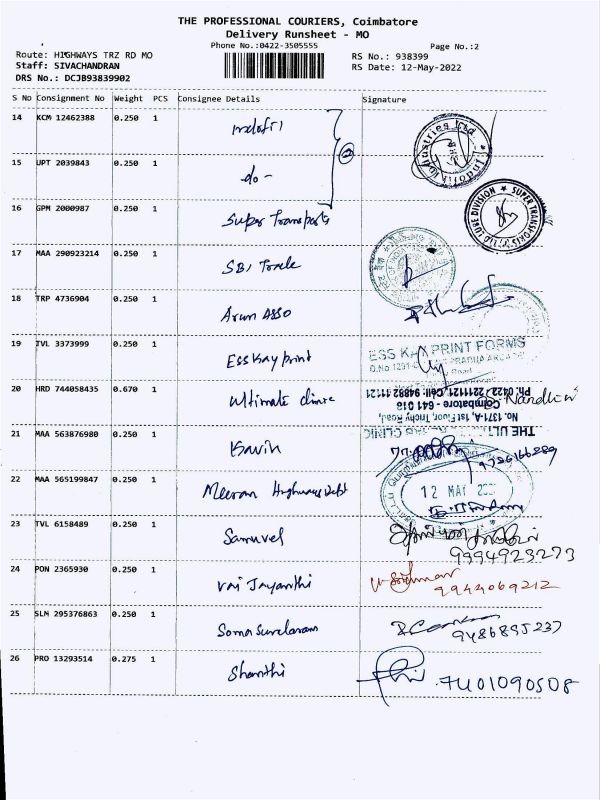 THE PROFESSIONAL COURIERS, Coimbatore
Delivery Runsheet - MO
Phone No.:0422-3505555
Page No.:2
Route: HIGHWAYS TRZ RD MO
RS No.: 938399
Staff: SIVACHANDRAN
RS Date: 12-May-2022
DRS No.: DCJB93839902
S No Consignment No Weight PCS Consignee Details Signature
14 KCM 12462388 0.250 1
15 UPT 2039843 0.250 1 do -
16 GPM 2000987 0.250 1 Super Transports
SUPER TRANSPORTS (P) LTD LUBE DIVISION
17 MAA 290923214 0.250 1 SBI Trade
18 TRP 4736904 0.250 1 Arun Asso
19 TVL 3373999 0.250 1 Esskay print
ESS KAY PRINT FORMS
20 HRD 744058435 0.670 1 Ultimate clinic
Ph: 0422 2211121, Cell: 94882 11121
Coimbatore - 641 018
No. 1371-A, 1st Floor, Trichy Road,
21 MAA 563876980 0.250 1 Kavin
22 MAA 565199847 0.250 1 Meeran Highways Dept
12 MAY
23 TVL 6158489 0.250 1 Samuvel
9994923273
24 PON 2365930 0.250 1 Vai Jayanthi
9944069212
25 SLM 295376863 0.250 1 Soma Sundaram
9486895237
26 PRO 13293514 0.275 1 Shanthi
7401090508